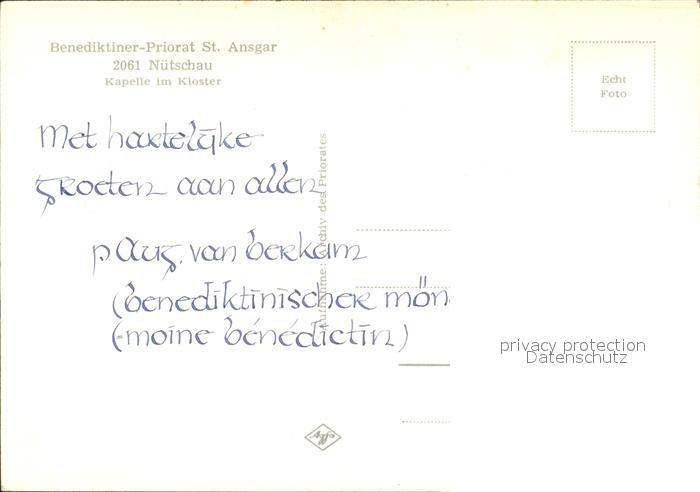 Benediktiner-Priorat St. Ansgar
2061 Nütschau
Kapelle im Kloster
Echt
Foto
Met hartelijke
groeten aan allen
p Aug. van Berkum
(benediktinischer mön
(= moine bénédictin)
Aufnahme: Archiv des Priorates
privacy protection
Datenschutz
Agfa